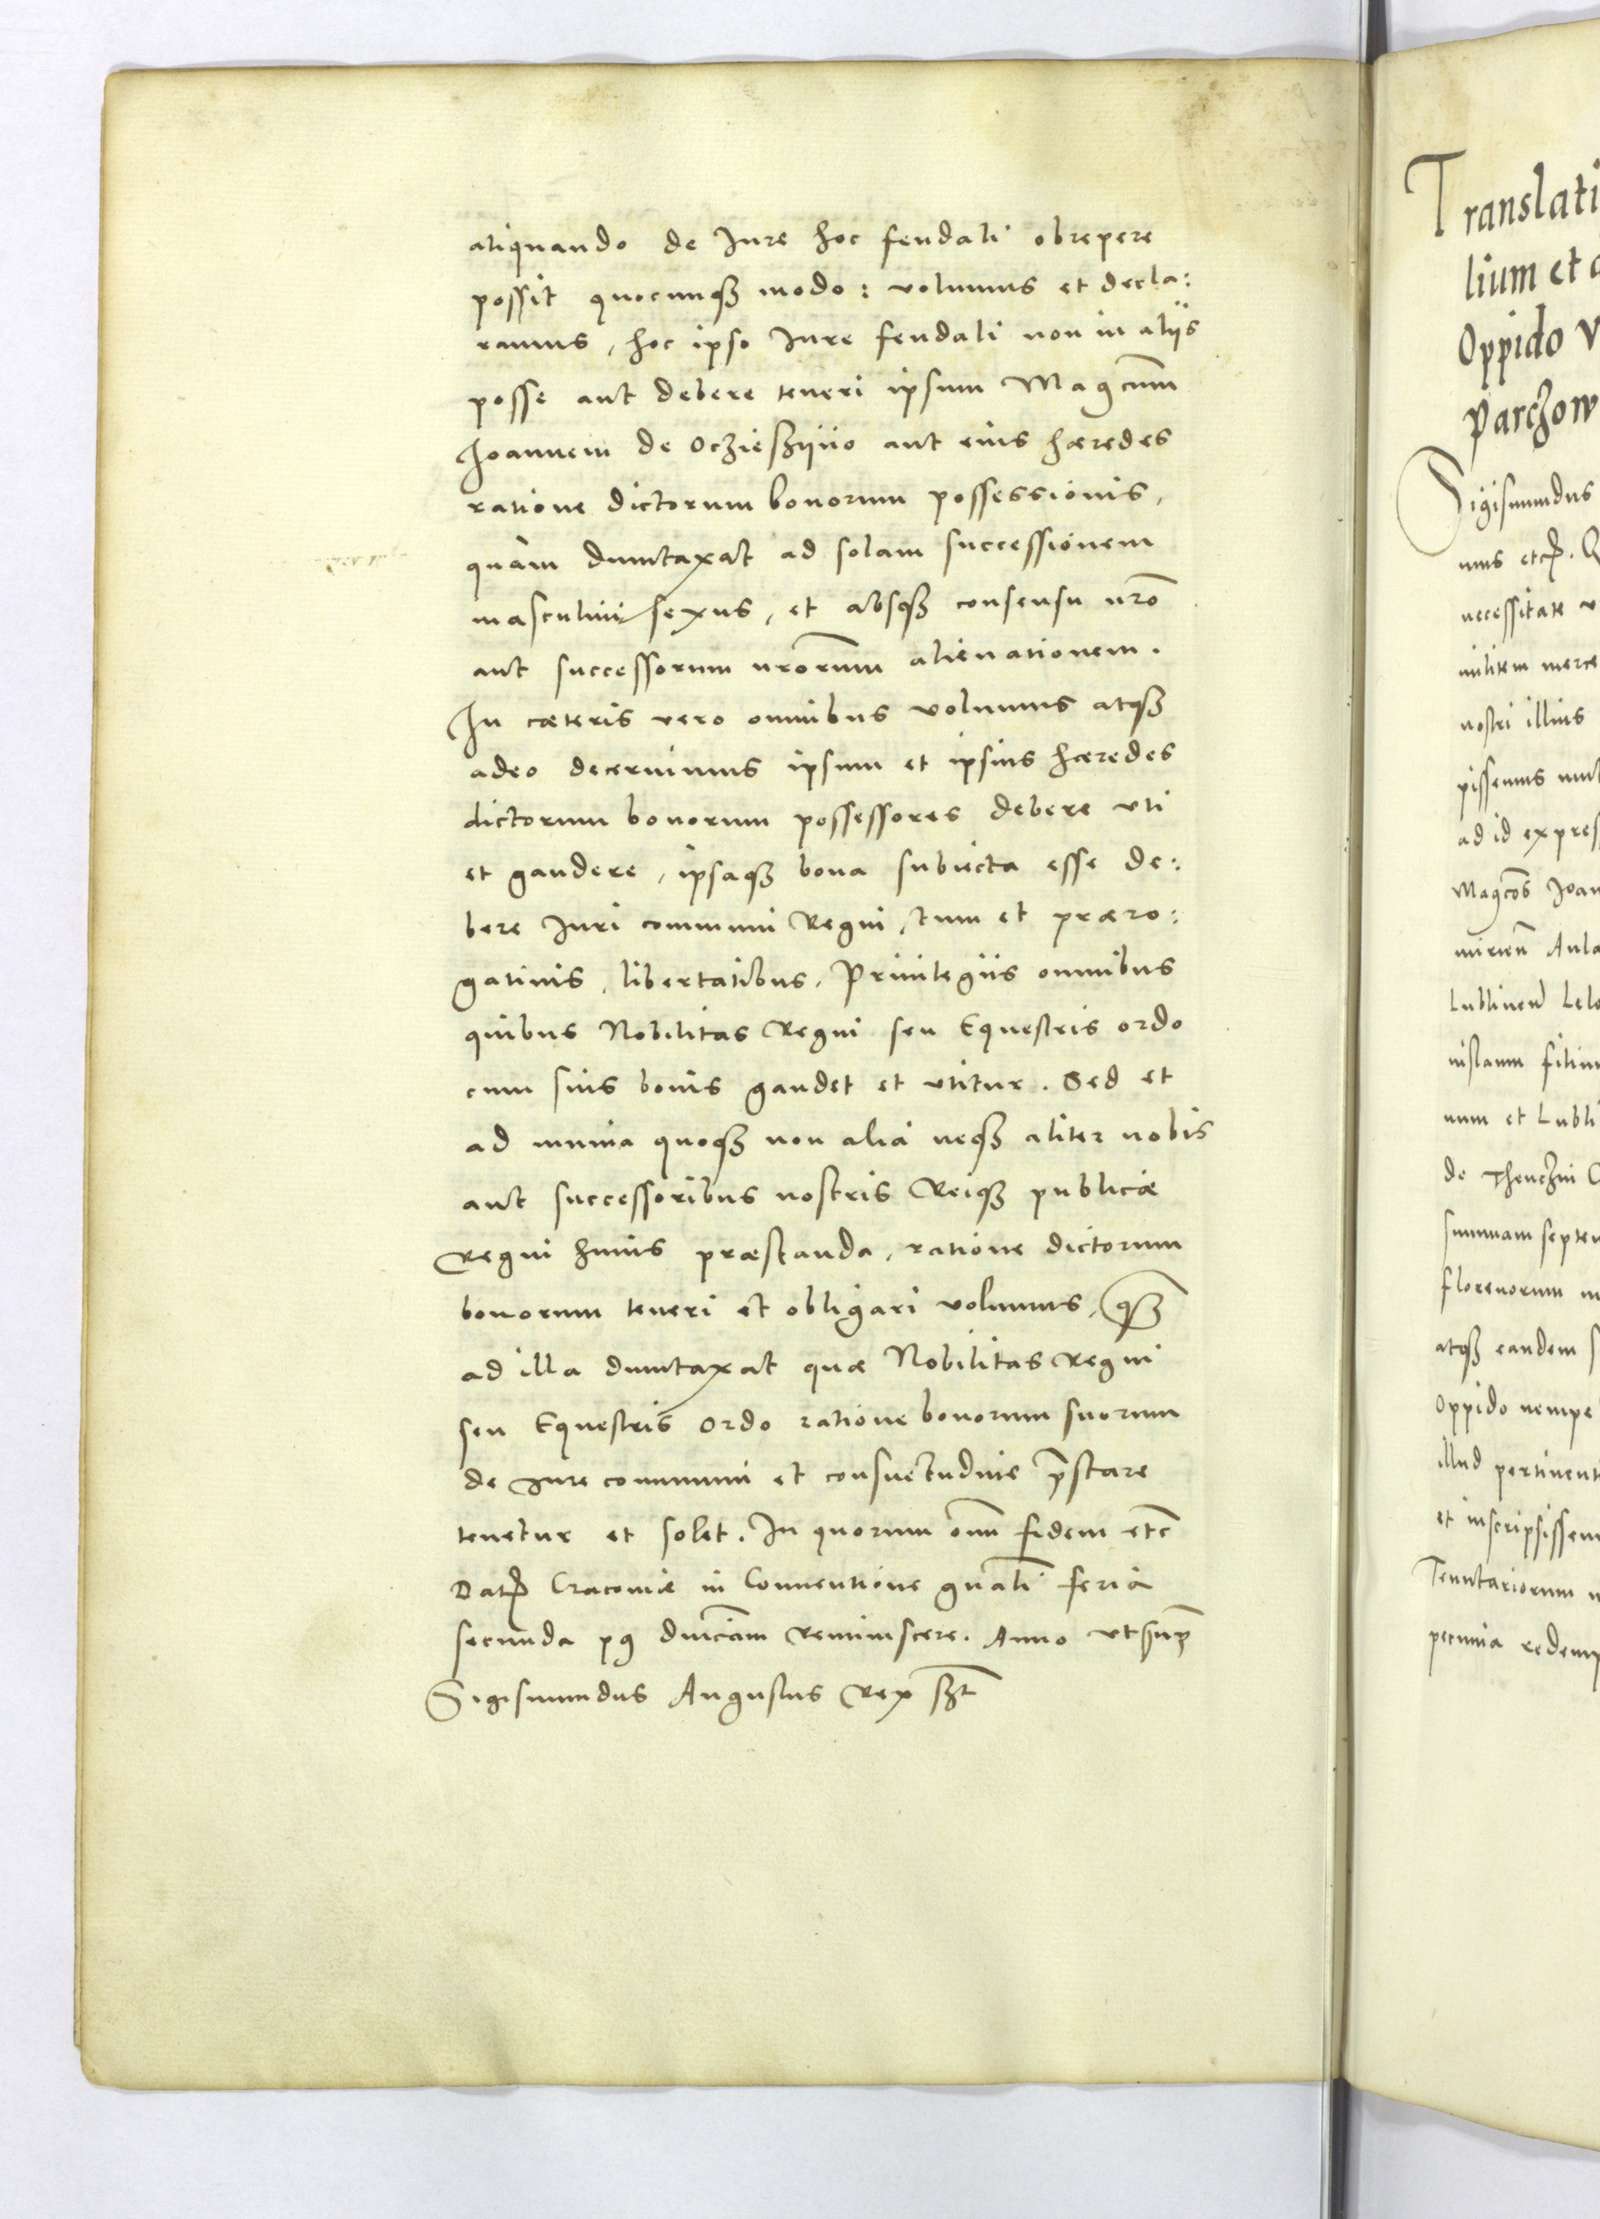 aliquando de Jure hoc feudali obrepere
possit quocunqȝ modo: volumus et decla:
ramus, hoc ipso Jure feudali non in aliis
posse aut debere teneri ipsum Magcum
Joannem de Oczieszyno aut eius hæredes
ratione dictorum bonorum possessionis,
quam dumtaxat ad solam successionem
masculini sexus, et absqȝ consensu nro
aut successorum nrorum alienationem.
In cæteris vero omnibus volumus atqȝ
adeo decernimus ipsum et ipsius hæredes
dictorum bonorum possessores debere vti
et gaudere, ipsaqȝ bona subiecta esse de:
bere Juri communi Regni, tum et præro:
gatiuis, libertatibus, Priuilegiis omnibus
quibus Nobilitas Regni seu Equestris ordo
cum suis bonis gaudet et vtitur. Sed et
ad munia quoqȝ non alia neqȝ aliter nobis
aut successoribus nostris Reiqȝ publicæ
Regni huius præstanda, ratione dictorum
bonorum teneri et obligari volumus, qȝ
ad illa dumtaxat quæ Nobilitas Regni
seu Equestris Ordo ratione bonorum suorum
de Jure communi et consuetudine pstare
tenetur et solet. In quorum om fidem etc
Dat Cracouiæ in Conuentione gnali feria
secunda pꝯ dnicam Reminiscere. Anno vt sup
Sigismundus Augustus Rex sszt
Translati
lium et
Oppido V
Parczow
Sigismundus
mus etc.
necessitate v
militem merce
nostri illius
pissemus mul
ad id expres
Magcos Joan
Aula
Lublinen Lelo
nislaum filiu
num et Lubli
de Thenczin C
summam septen
florenorum m
atqȝ eandem s
Oppido nempe
illud pertinenti
et inscripsissem
Tenutariorum n
pecunia redemp